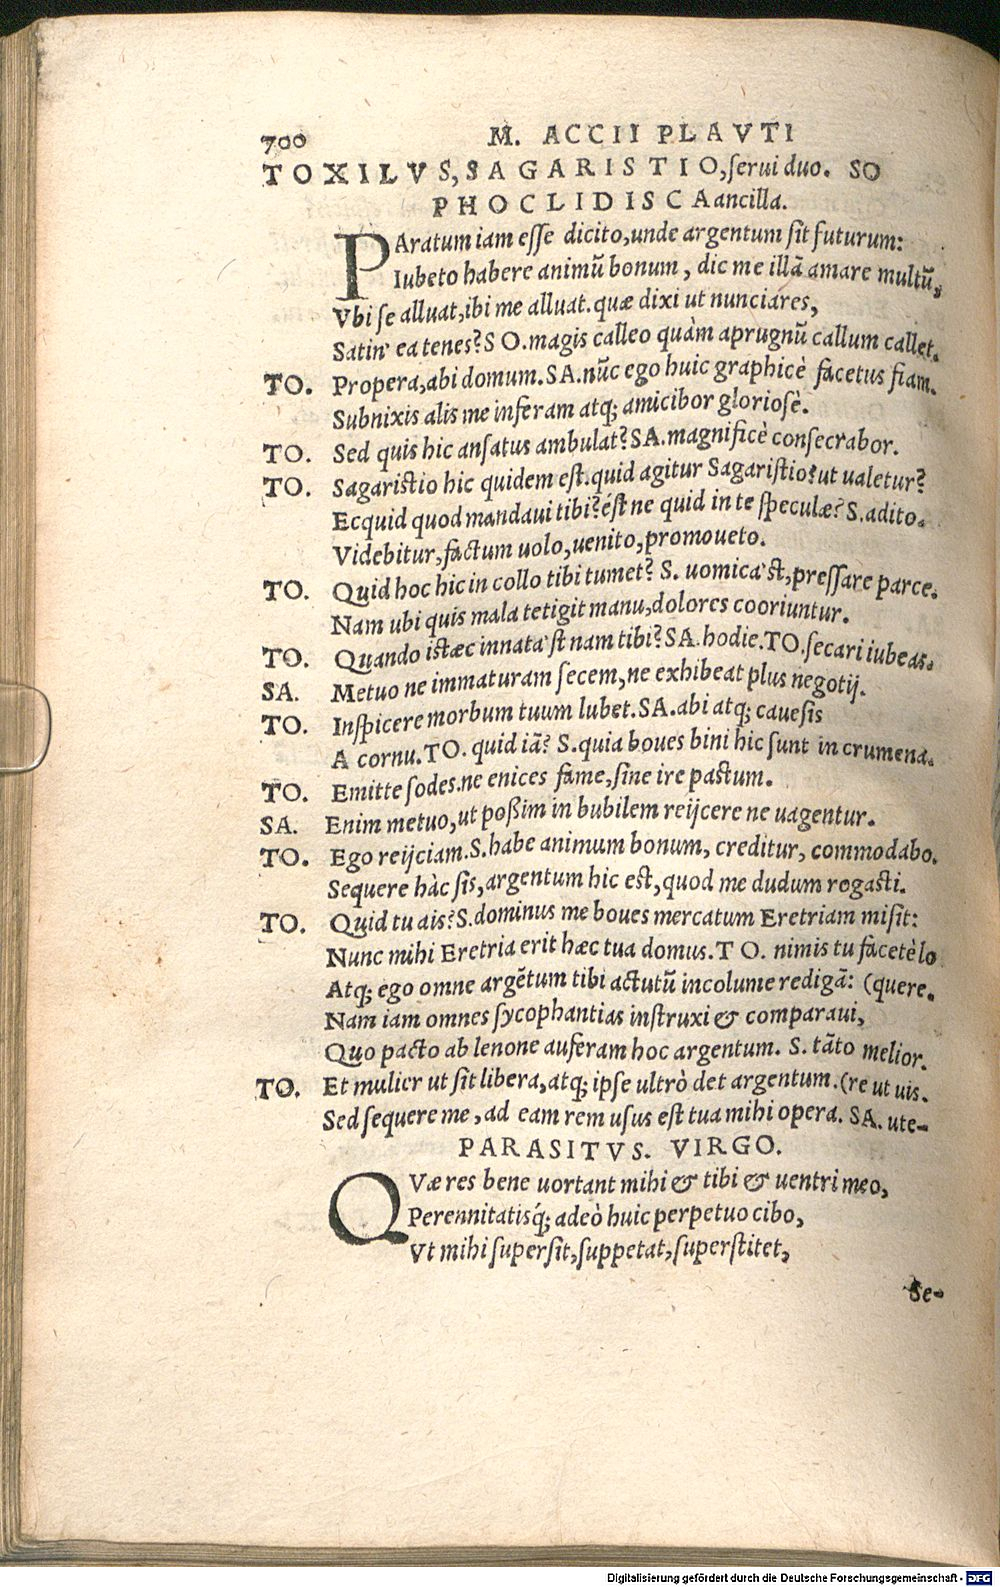 700 M. ACCII PLAVTI
TOXILVS, SAGARISTIO, serui duo. SO
PHOCLIDISCA ancilla.
PAratum iam esse dicito, unde argentum sit futurum:
Iubeto habere animũ bonum, dic me illã amare multũ,
Vbi se alluat, ibi me alluat. quæ dixi ut nunciares,
Satin' ea tenes? SO. magis calleo quàm aprugnũ callum callet.
TO. Propera, abi domum. SA. nũc ego huic graphicè facetus fiam.
Subnixis alis me inferam atq; amicibor gloriosè.
TO. Sed quis hic ansatus ambulat? SA. magnificè consecrabor.
TO. Sagaristio hic quidem est. quid agitur Sagaristio? ut ualetur?
Ecquid quod mandaui tibi? ést ne quid in te speculæ? S. adito.
Videbitur, factum uolo, uenito, promoueto.
TO. Quid hoc hic in collo tibi tumet? S. uomica'st, pressare parce.
Nam ubi quis mala tetigit manu, dolores cooriuntur.
TO. Quando istæc innata'st nam tibi? SA. hodie. TO. secari iubeas.
SA. Metuo ne immaturam secem, ne exhibeat plus negotij.
TO. Inspicere morbum tuum lubet. SA. abi atq; cauesis
A cornu. TO. quid iã? S. quia boues bini hic sunt in crumena.
TO. Emitte sodes. ne enices fame, sine ire pastum.
SA. Enim metuo, ut poßim in bubilem reijcere ne uagentur.
TO. Ego reijciam. S. habe animum bonum, creditur, commodabo.
Sequere hàc sis, argentum hic est, quod me dudum rogasti.
TO. Quid tu ais? S. dominus me boues mercatum Eretriam misit:
Nunc mihi Eretria erit hæc tua domus. TO. nimis tu facetè lo
Atq; ego omne argẽtum tibi actutũ incolume redigã: (quere.
Nam iam omnes sycophantias instruxi & comparaui,
Quo pacto ab lenone auferam hoc argentum. S. tãto melior.
TO. Et mulier ut sit libera, atq; ipse ultrò det argentum. (re ut uis.
Sed sequere me, ad eam rem usus est tua mihi opera. SA. ute-
PARASITVS. VIRGO.
QVæ res bene uortant mihi & tibi & uentri meo,
Perennitatisq́; adeò huic perpetuo cibo,
Vt mihi supersit, suppetat, superstitet,
Se-
Digitalisierung gefördert durch die Deutsche Forschungsgemeinschaft - DFG